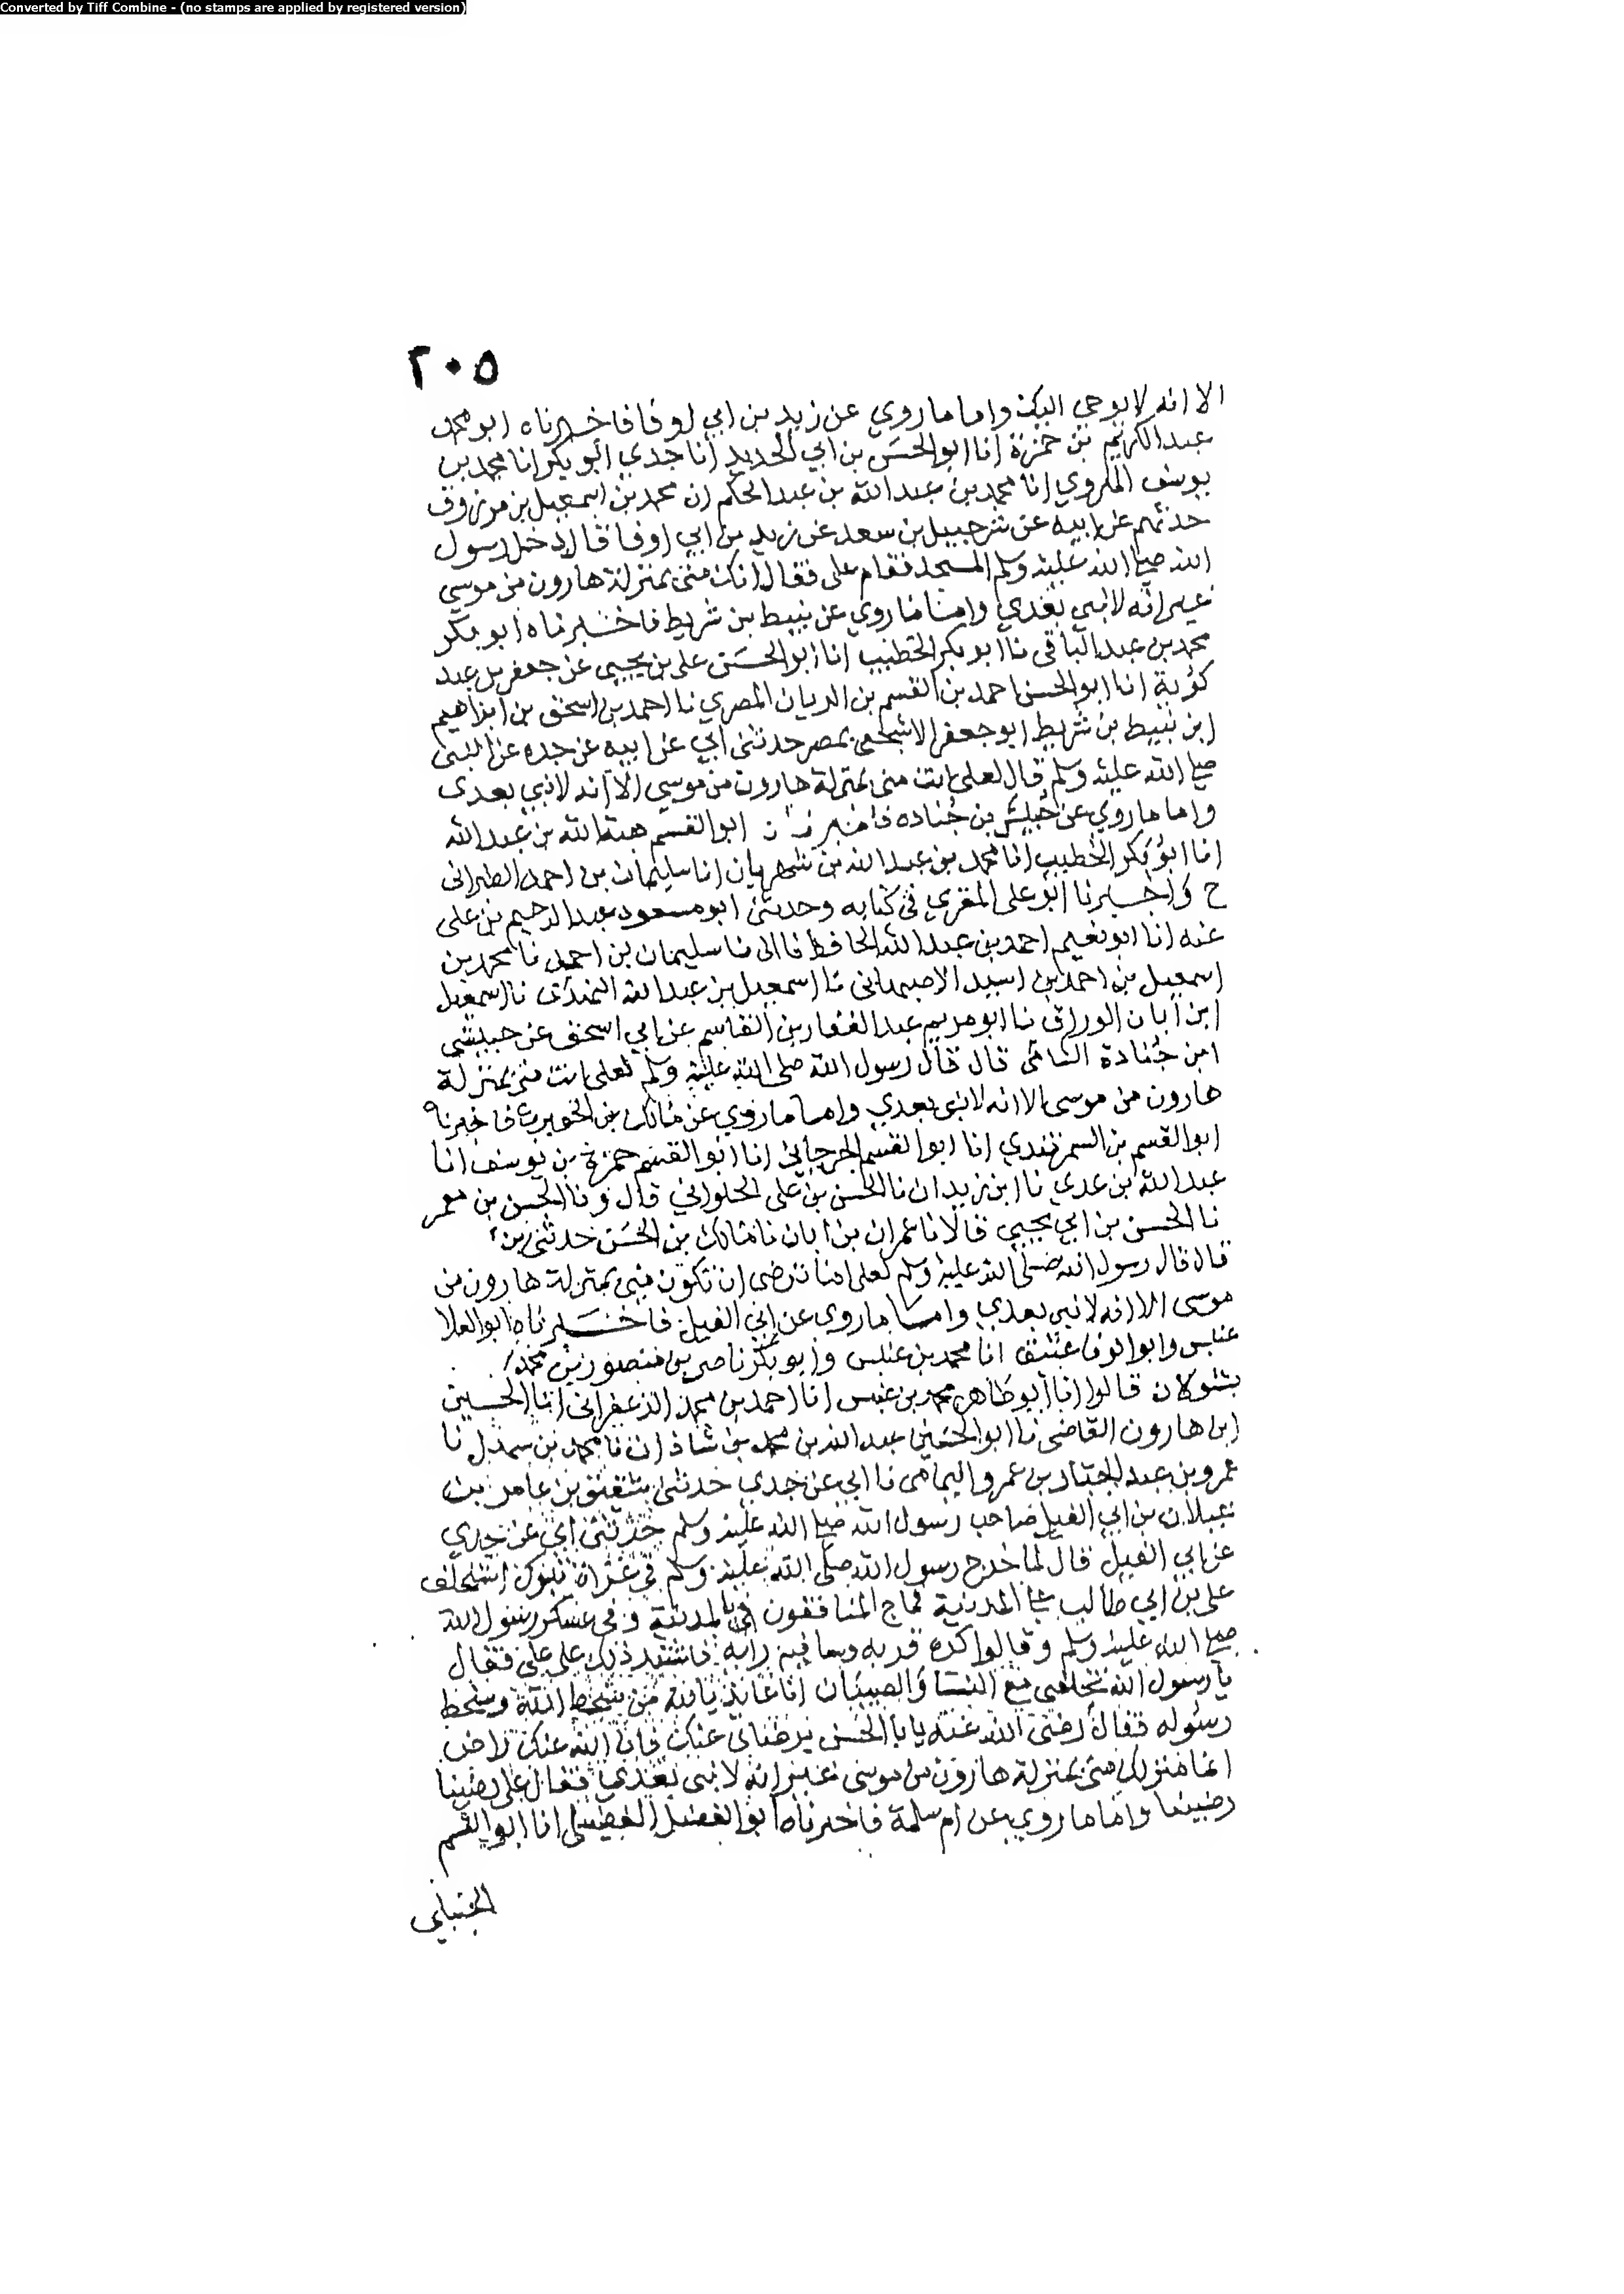 Converted by Tiff Combine - (no stamps are applied by registered version)
٢٠٥
الا انه لا يوحى اليك واما ما روي عن زيد بن ابي اوفا فاخبرناه ابو محمد
عبد الكريم بن حمزة انا ابو الحسن بن ابي الحديد انا جدي ابو بكر انا محمد بن
يوسف الهروي انا محمد بن عبد الله بن عبد الحكم ان محمد بن اسمعيل بن مرزوق
حدثهم عن ابيه عن شرحبيل بن سعد عن زيد بن ابي اوفا قال دخل رسول
الله صلى الله عليه وسلم المسجد فقام على فقال انك منى بمنزلة هارون من موسى
غير انه لا نبي بعدي واما ما روي عن نبيط بن شريط فاخبرناه ابو بكر
محمد بن عبد الباقى نا ابو بكر الخطيب انا ابو الحسن على بن يحيى عن جعفر بن عبد
كؤية انا ابو الحسن احمد بن القسم بن الريان المصري نا احمد بن اسحق بن ابراهيم
ابن نبيط بن شريط ابو جعفر الاشجعى بمصر حدثنى ابي عن ابيه عن جده عن النبى
صلى الله عليه وسلم قال لعلى انت منى بمنزلة هارون من موسى الا انه لا نبي بعدى
واما ما روي عن حبشى بن جناده ابو القسم هبة الله بن عبد الله
انا ابو بكر الخطيب انا محمد بن عبد الله بن شهريان انا سليمان بن احمد الطبرانى
ح واخبرنا ابو على المقري في كتابه وحدثنى ابو مسعود عبد الرحيم بن على
عنه انا ابو نعيم احمد بن عبد الله الحافظ قالا نا سليمان بن احمد نا محمد بن
اسمعيل بن احمد بن اسيد الاصبهانى نا اسمعيل بن عبد الله نا اسمعيل
ابن ابان الوراق نا ابو مريم عبد الغفار بن القاسم عن ابي اسحق عن حبيشي
ابن جنادة قال قال رسول الله صلى الله عليه وسلم لعلى انت منى بمنزلة
هارون من موسى الا انه لا نبى بعدي واما ما روي عن مالك بن الحويرث فاخبرناه
ابو القسم بن السمرقندي انا ابو القسم الجرجاني انا ابو القسم حمزة بن يوسف انا
عبد الله بن عدي نا ابن زيدان نا الحسن بن على الحلواني قال ونا الحسن بن معمر
نا الحسن بن ابي يحيى قالا نا عمران بن ابان نا مالك بن الحسن حدثنى
قال قال رسول الله صلى الله عليه وسلم لعلى اما ترضى ان تكون منى بمنزلة هارون من
موسى الا انه لا نبي بعدي واما ما روى عن ابي الفيل فاخبرناه ابو العلا
عنبس وابو الوفا عتيق انا محمد بن عنبس وابو بكر ناصر بن منصور بن محمد
بشولان قالوا انا ابو طاهر محمد بن عنبس انا احمد بن محمد الزعفرانى انا الحسين
ابن هارون القاضى نا ابو الحسين عبد الله بن محمد بن شاذان نا محمد بن سهل نا
عمرو بن عبد الجبار بن عمرو اليمامى نا ابي عن جدي حدثنى بن عامر بن
عيلان بن ابي الفيل صاحب رسول الله صلى الله عليه وسلم حدثنى ابي عن جدي
عن ابي الفيل قال لما خرج رسول الله صلى الله عليه وسلم في غزاة تبوك استخلف
على بن ابي طالب على المدينة فماج المنافقون بالمدينة وفى عسكر رسول الله
صلى الله عليه وسلم وقالوا كره قربه وسا فيه رايه فاشتد ذلك على على فقال
يا رسول الله تخلفنى مع النسا والصبيان انا عائذ بالله من سخط الله وسخط
رسوله فقال رضى الله عنه يابا الحسن برضائى عنك فان الله عنك راض
انما منزلك منى بمنزلة هارون من موسى غير انه لا نبى بعدي فقال على رضينا
رضينا واما ما روي عن ام سلمة فاخبرناه ابو الفضل الفضيلى انا ابو القسم
الخليلي